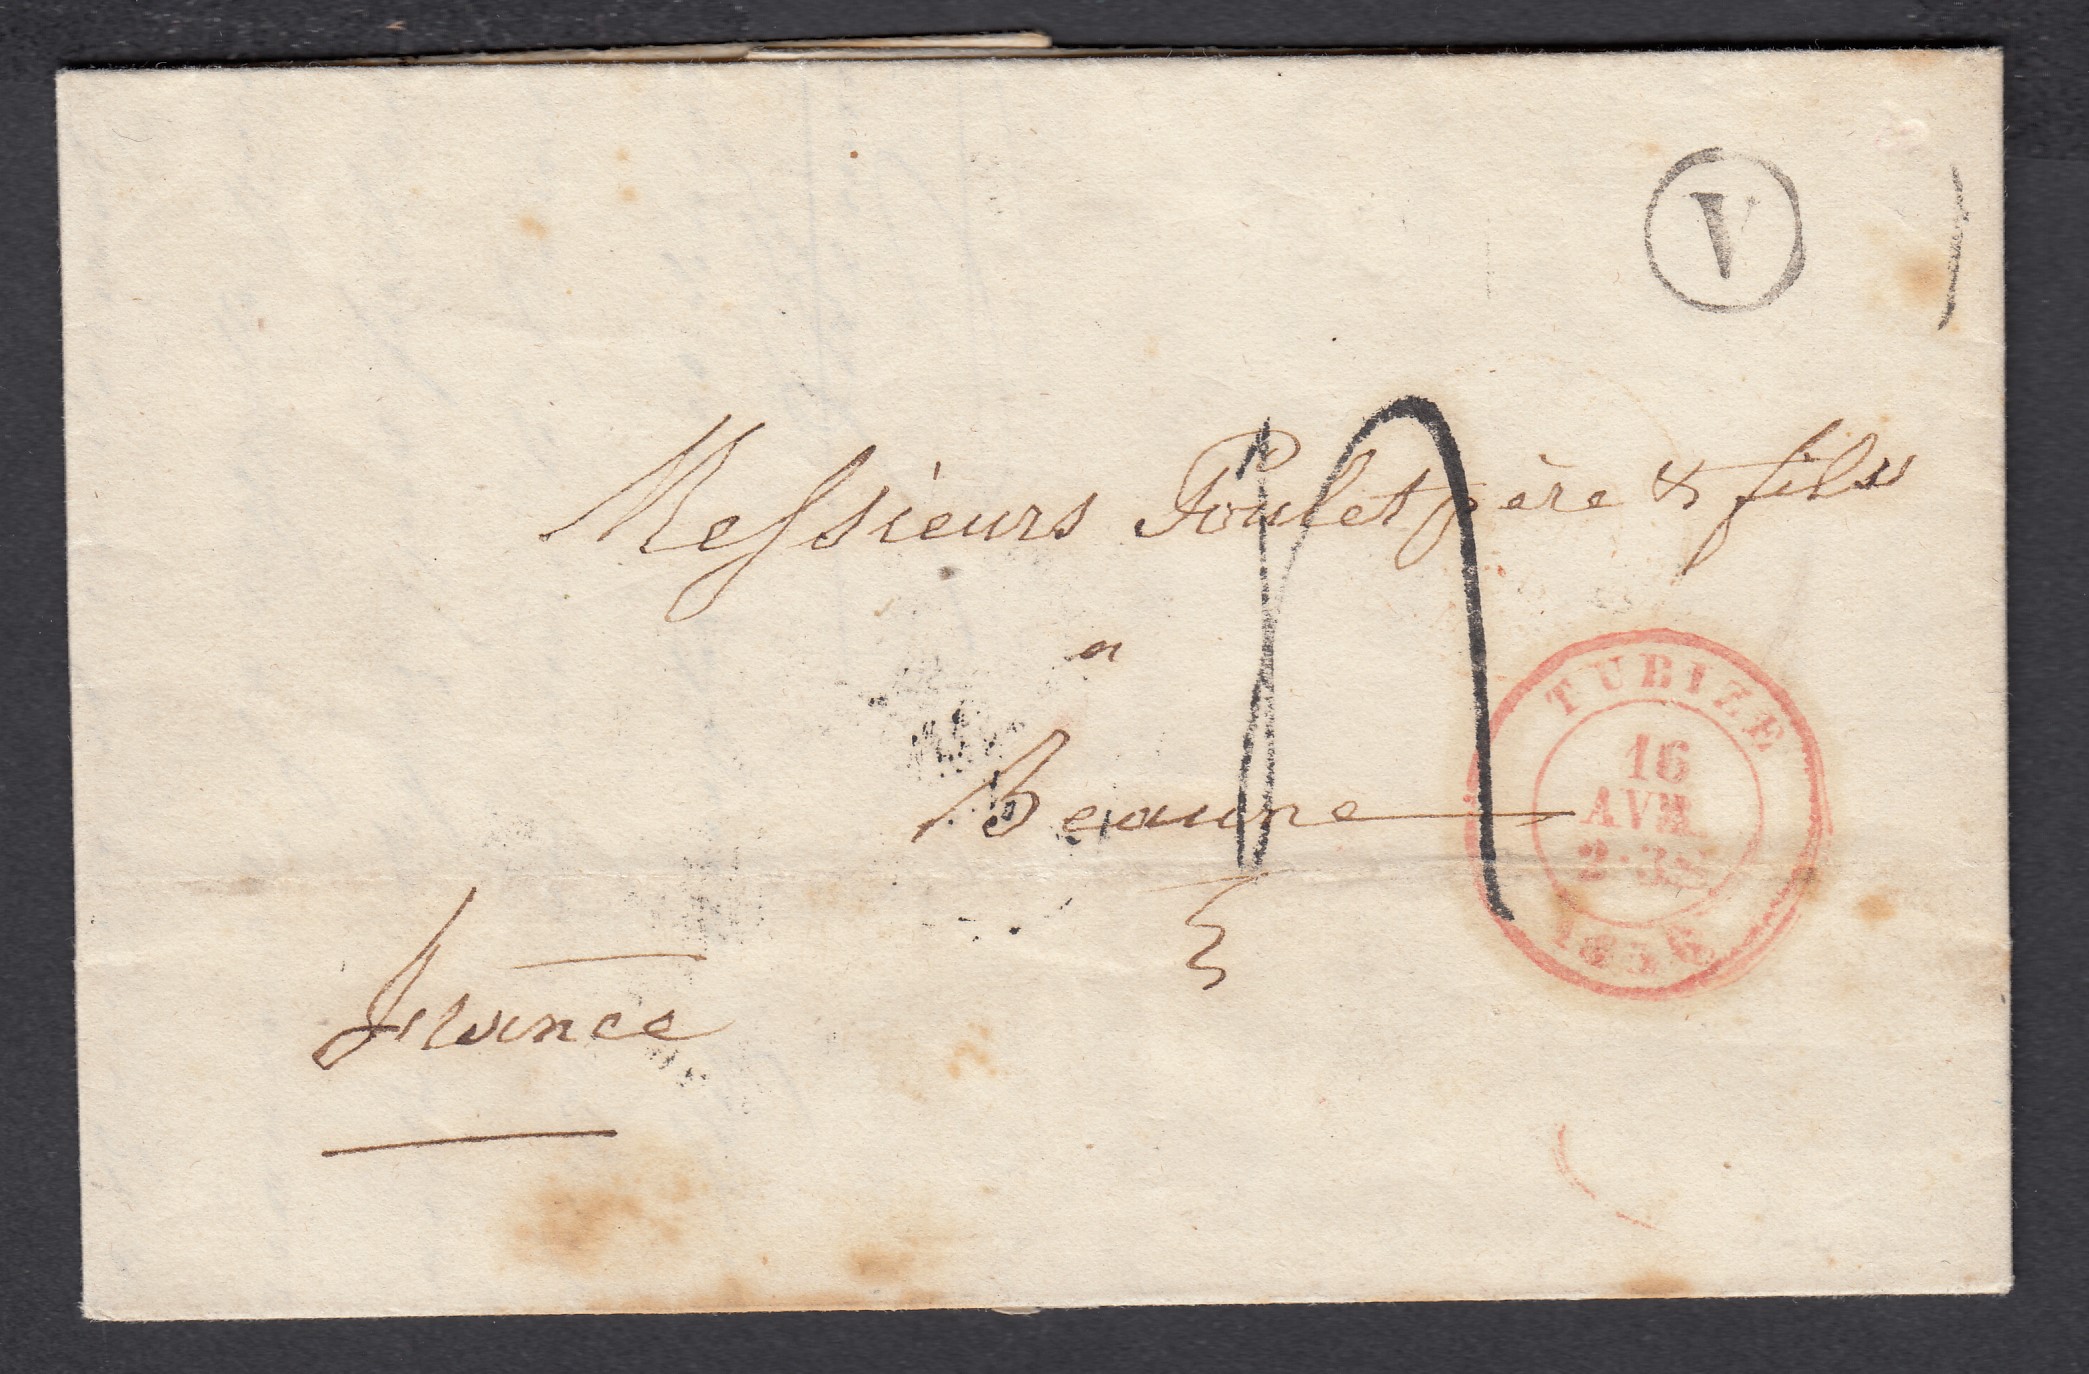 V
Messieurs Poulet père & fils
a
Beaune
France
TUBIZE
16
AVR.
2·3S
1856